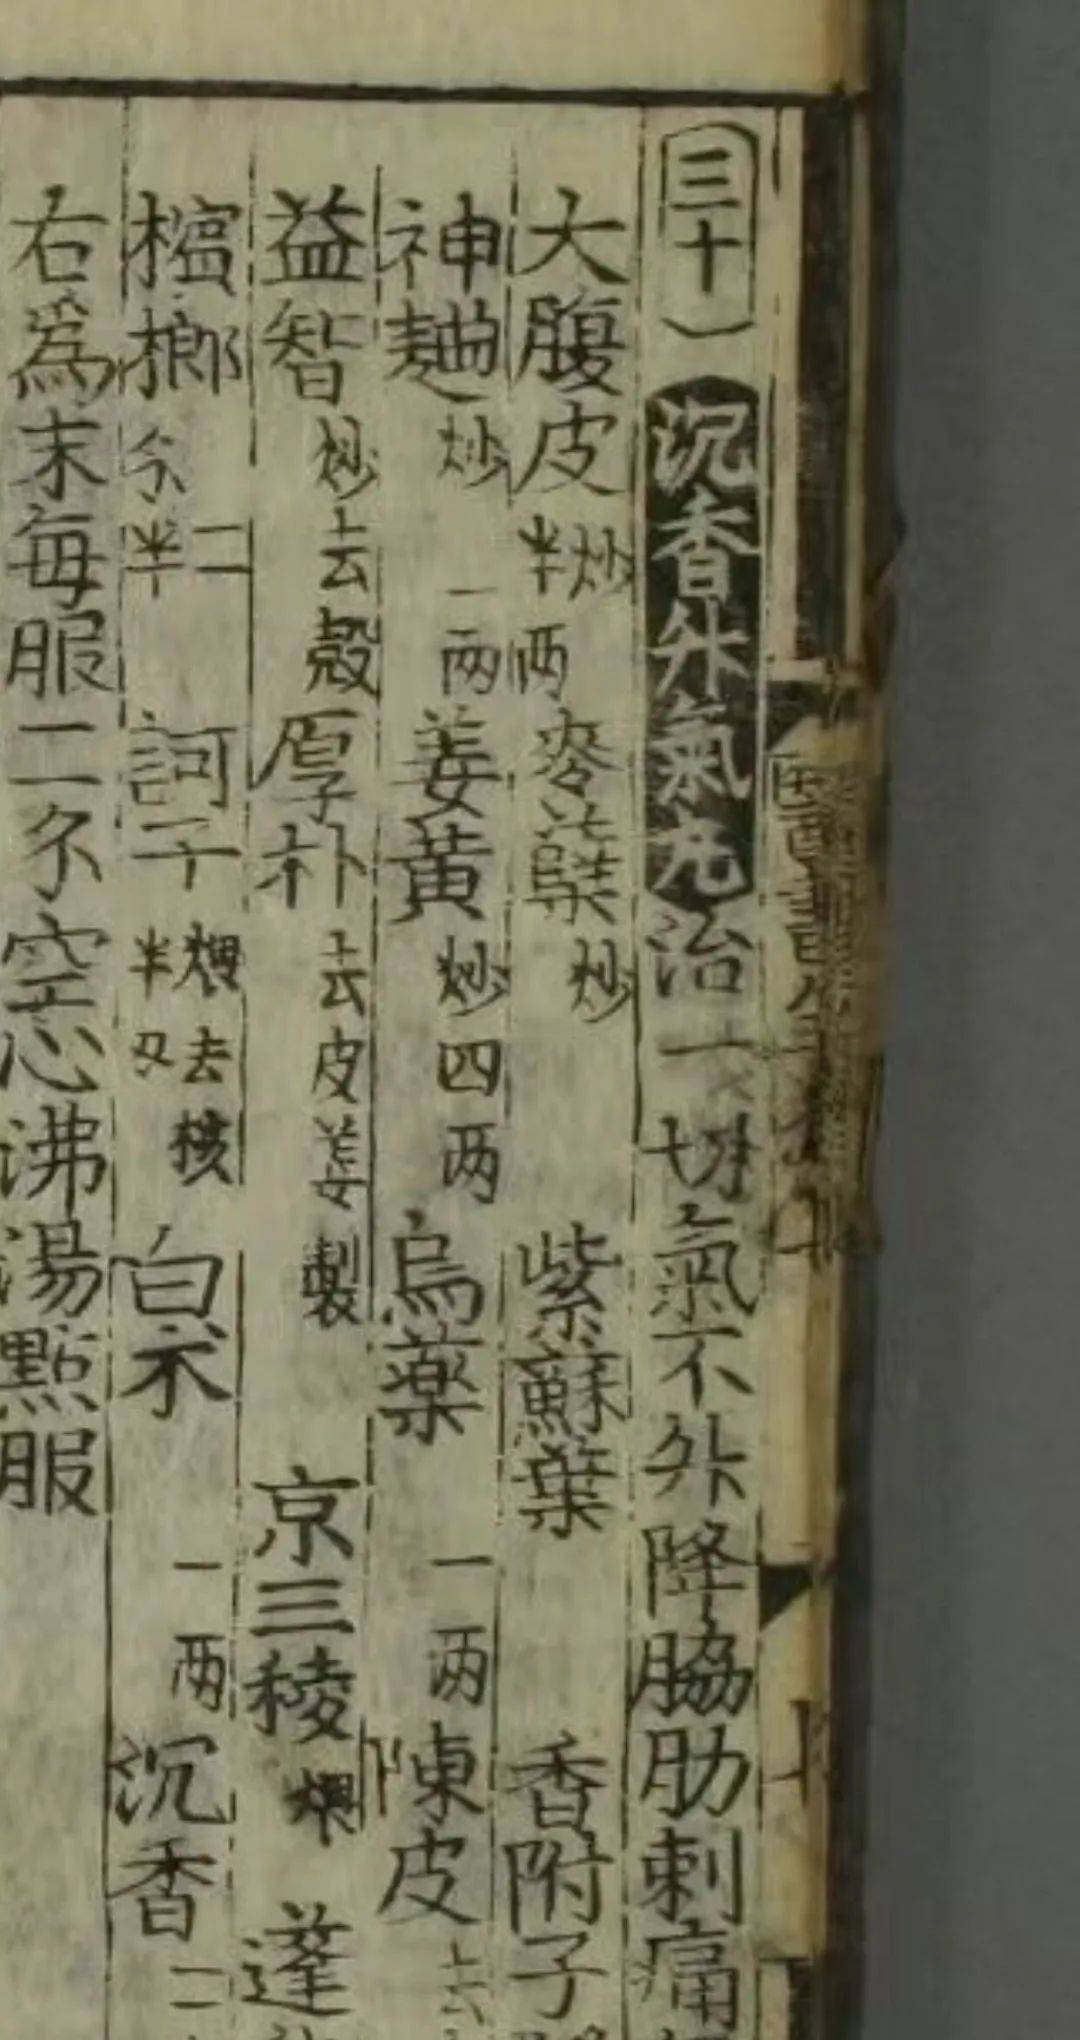 三十 沉香升氣元 治一切氣不升降脇肋刺痛
大腹皮 炒 半两 麥蘖 炒 紫蘇葉 香附子
神麯 炒 一两 姜黄 炒 四两 烏薬 一两 陳皮 去
益智 炒 去殻 厚朴 去皮姜製 京三稜 煨 蓬
檳榔 二 分半 訶子 煨去核 半又 白术 一两 沉香 二
右爲末每服二分空心沸湯點服